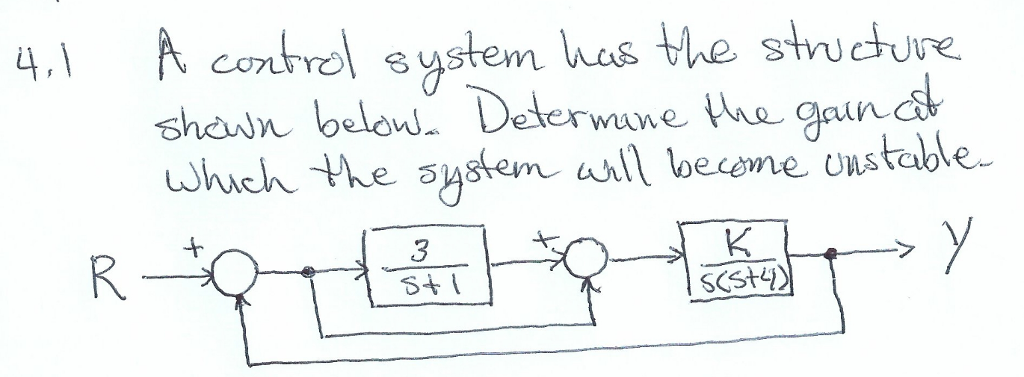 4.1 A control system has the structure
shown below. Determine the gain at
which the system will become unstable.
R + 3 + K Y
s+1 s(s+4)